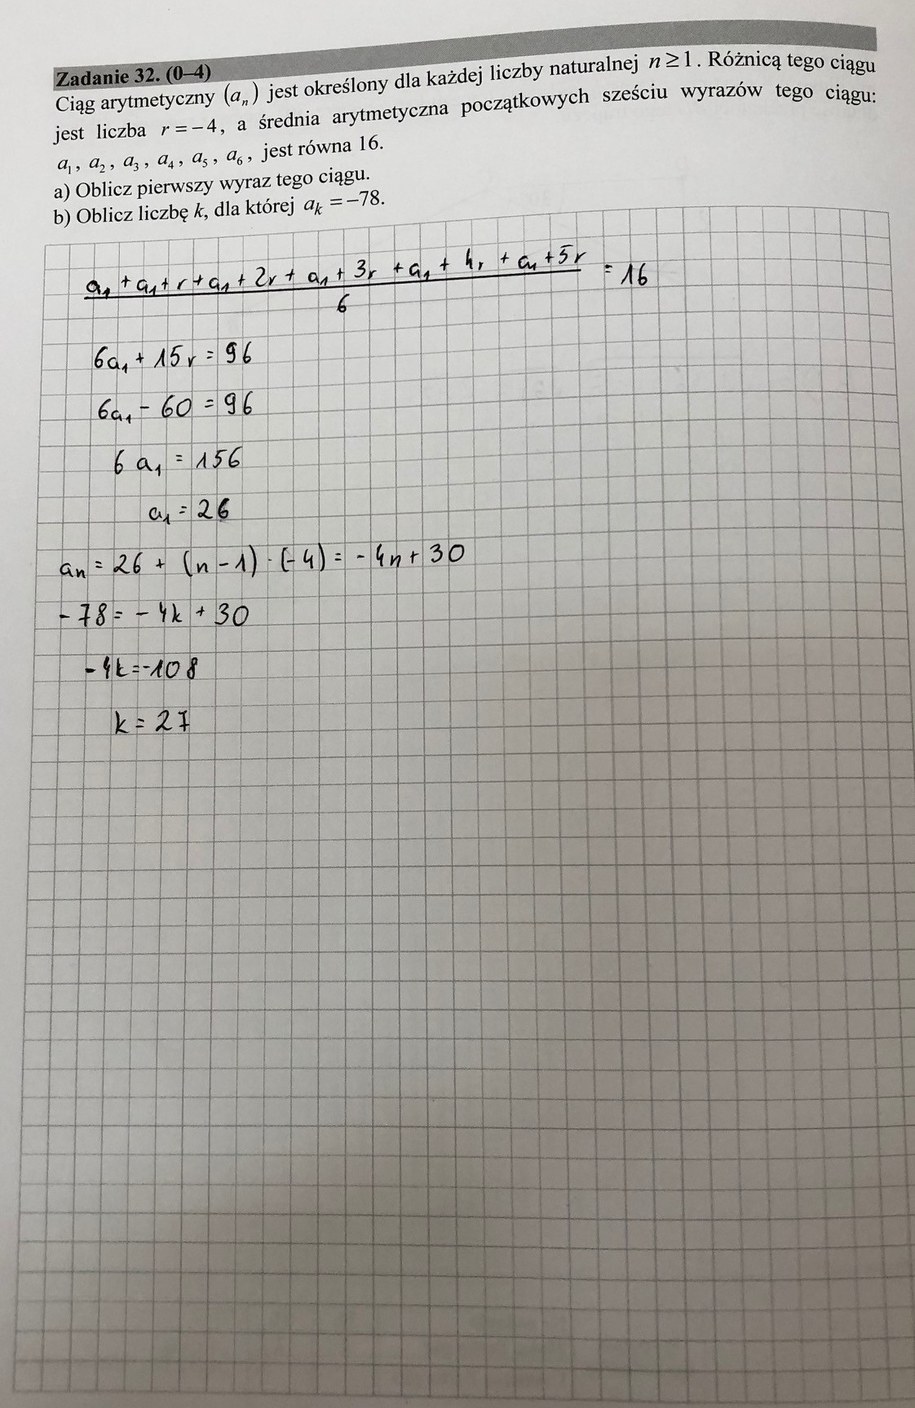 Zadanie 32. (0–4)
Ciąg arytmetyczny (aₙ) jest określony dla każdej liczby naturalnej n ≥ 1. Różnicą tego ciągu
jest liczba r = −4, a średnia arytmetyczna początkowych sześciu wyrazów tego ciągu:
a₁, a₂, a₃, a₄, a₅, a₆, jest równa 16.
a) Oblicz pierwszy wyraz tego ciągu.
b) Oblicz liczbę k, dla której aₖ = −78.
a₁ + a₁ + r + a₁ + 2r + a₁ + 3r + a₁ + 4r + a₁ + 5r = 16
6
6a₁ + 15r = 96
6a₁ - 60 = 96
6 a₁ = 156
a₁ = 26
aₙ = 26 + (n - 1) · (-4) = - 4n + 30
- 78 = - 4k + 30
- 4k = -108
k = 27